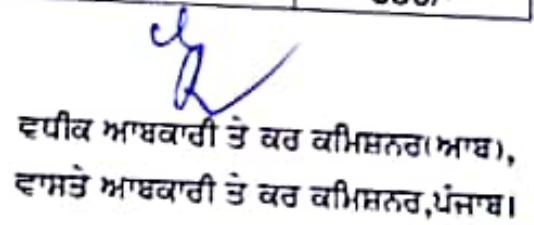 ਵਧੀਕ ਆਬਕਾਰੀ ਤੇ ਕਰ ਕਮਿਸ਼ਨਰ(ਆਬ),
ਵਾਸਤੇ ਆਬਕਾਰੀ ਤੇ ਕਰ ਕਮਿਸ਼ਨਰ,ਪੰਜਾਬ।